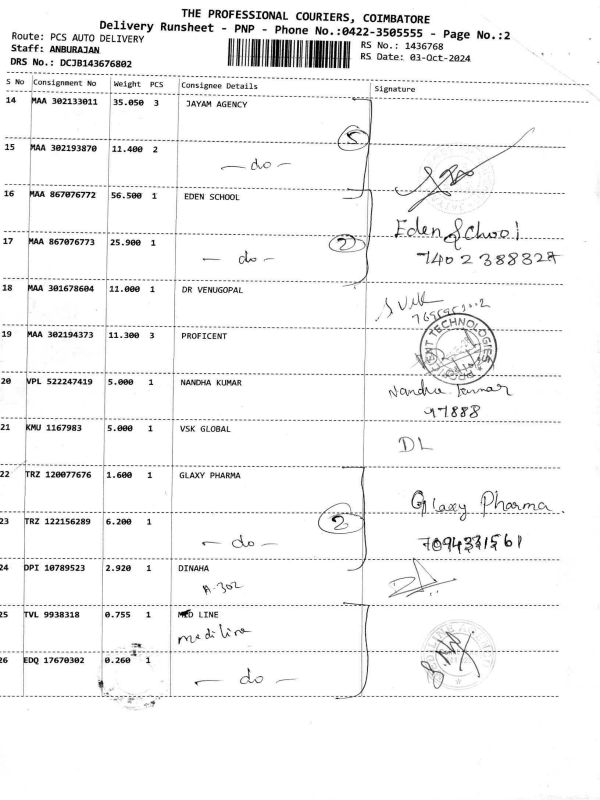 THE PROFESSIONAL COURIERS, COIMBATORE
Delivery Runsheet - PNP - Phone No.:0422-3505555 - Page No.:2
Route: PCS AUTO DELIVERY
RS No.: 1436768
Staff: ANBURAJAN
RS Date: 03-Oct-2024
DRS No.: DCJB143676802
S No Consignment No Weight PCS Consignee Details Signature
14 MAA 302133011 35.050 3 JAYAM AGENCY
5
15 MAA 302193870 11.400 2 — do —
16 MAA 867076772 56.500 1 EDEN SCHOOL
Eden School
2
17 MAA 867076773 25.900 1 — do —
7402388327
18 MAA 301678604 11.000 1 DR VENUGOPAL
19 MAA 302194373 11.300 3 PROFICENT
PROFICIENT TECHNOLOGIES
20 VPL 522247419 5.000 1 NANDHA KUMAR
Nandha kumar
97888
21 KMU 1167983 5.000 1 VSK GLOBAL
DL
22 TRZ 120077676 1.600 1 GLAXY PHARMA
Glaxy Pharma.
2
23 TRZ 122156289 6.200 1 — do —
7094331561
24 DPI 10789523 2.920 1 DINAHA
A-302
25 TVL 9938318 0.755 1 MED LINE
mediline
26 EDQ 17670302 0.260 1 — do —